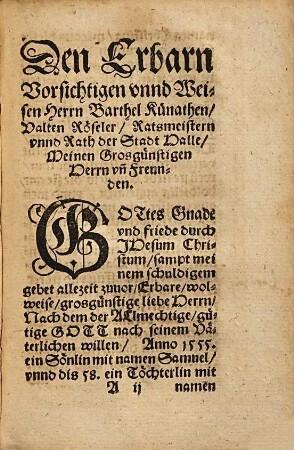 Den Erbarn
Vorsichtigen vnnd Wei-
sen Herrn Barthel Künathen/
Valten Röseler/ Ratsmeistern
vnnd Rath der Stadt Halle/
Meinen Grosgünstigen
Herrn vñ Freun-
den.
GOTtes Gnade
vnd friede durch
JHesum Chri-
stum/ sampt mei
nem schuldigem
gebet allezeit zuuor/ Erbare/ wol-
weise/ grosgünstige liebe Herrn/
Nach dem der Allmechtige/ gü-
tige GOTT nach seinem Vä-
terlichen willen/ Anno 1555.
ein Sönlin mit namen Samuel/
vnnd dis 58. ein Töchterlin mit
A ij namen